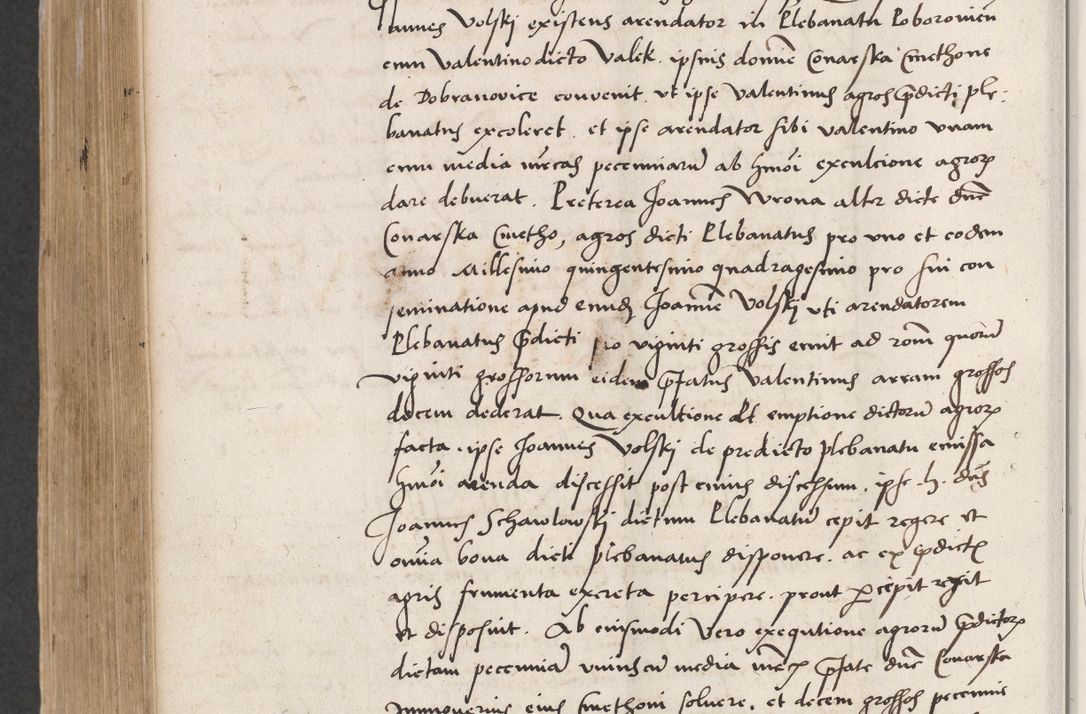 Joannes Volski existens arendator in Plebanatu Poborovieñ
cum Valentino dicto Valek. ipsius domine Conarska Cmethone
de Dobranovice convenit. ut ipse Valentinus agros p̃dicti ple:
banatus excoleret. et ipse arendator sibi Valentino unam
cum media m̃rcas pecuniarũ ab hmõi exculcione agroꝝ
dare debuerat. Preterea Joannes Wrona alter dicte dñe
Conarska Cmetho, agros dicti Plebanatus pro uno et eodem
anno Millesimo quingentesimo quadragesimo pro sui con
seminatione apud eundẽ Joannẽ Volski uti arendatorem
Plebanatus p̃dicti pro viginti grossis emit ad rõm quorũ
viginti grossorum eidem p̃fatus Valentinus arram grossos
decem dederat. Qua excultione et emptione dictorũ agroꝝ
facta. ipse Joannes Volski de predicto plebanatu emissa
hmõi arenda discessit post cuius discessum. ipse. h. dñs
Joannes Schawlowski dictum Plebanatũ cepit regere et
omnia bona dicti plebanatus disponere. ac ex p̃dictꝭ
agris frumenta excreta percipere. prout percepit regit
et disposuit. Ab cuismodi vero exequtione agrorũ p̃dictoꝝ
dictam pecuniã uniuscũ media m̃rcꝭ p̃fate dñe Conarska
Cmethoni solvere, et decem grossos pecunie